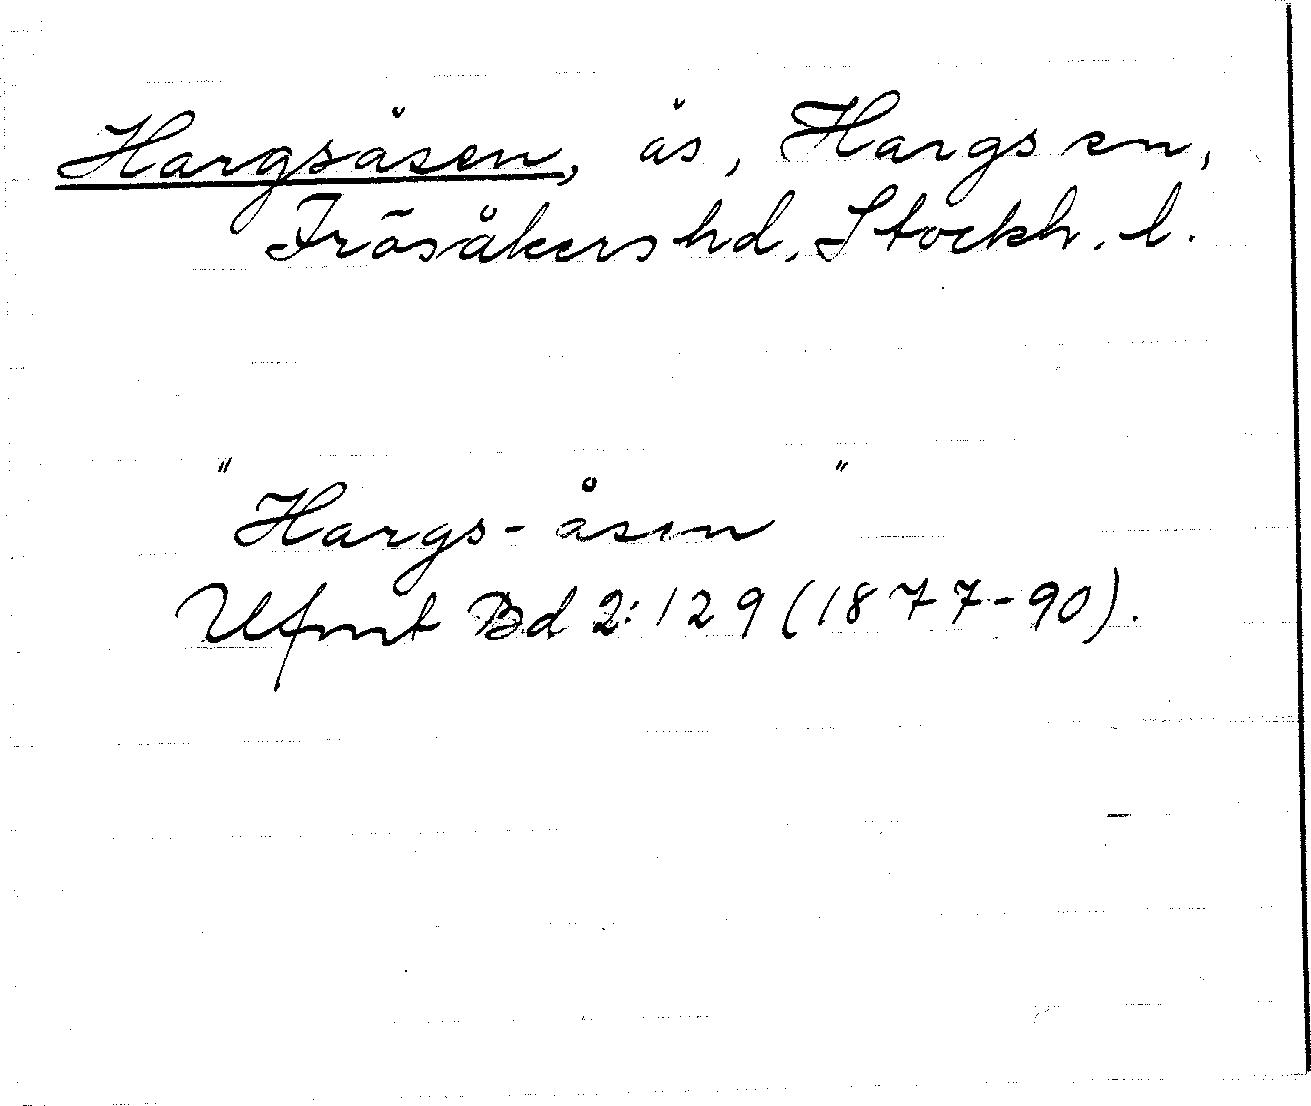 Hargsåsen, ås, Hargs sn,
Frösåkers hd, Stockh. l.
"Hargs-åsen"
Ufmt Bd 2:129 (1877-90).